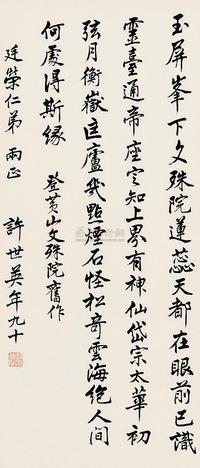 玉屏峯下文殊院蓮蕊天都在眼前已識
靈臺通帝座定知上界有神仙岱宗太華初
弦月衡嶽匡廬幾點煙石怪松奇雲海絕人間
何處得斯緣 登黃山文殊院舊作
廷榮仁弟 兩正
許世英年九十